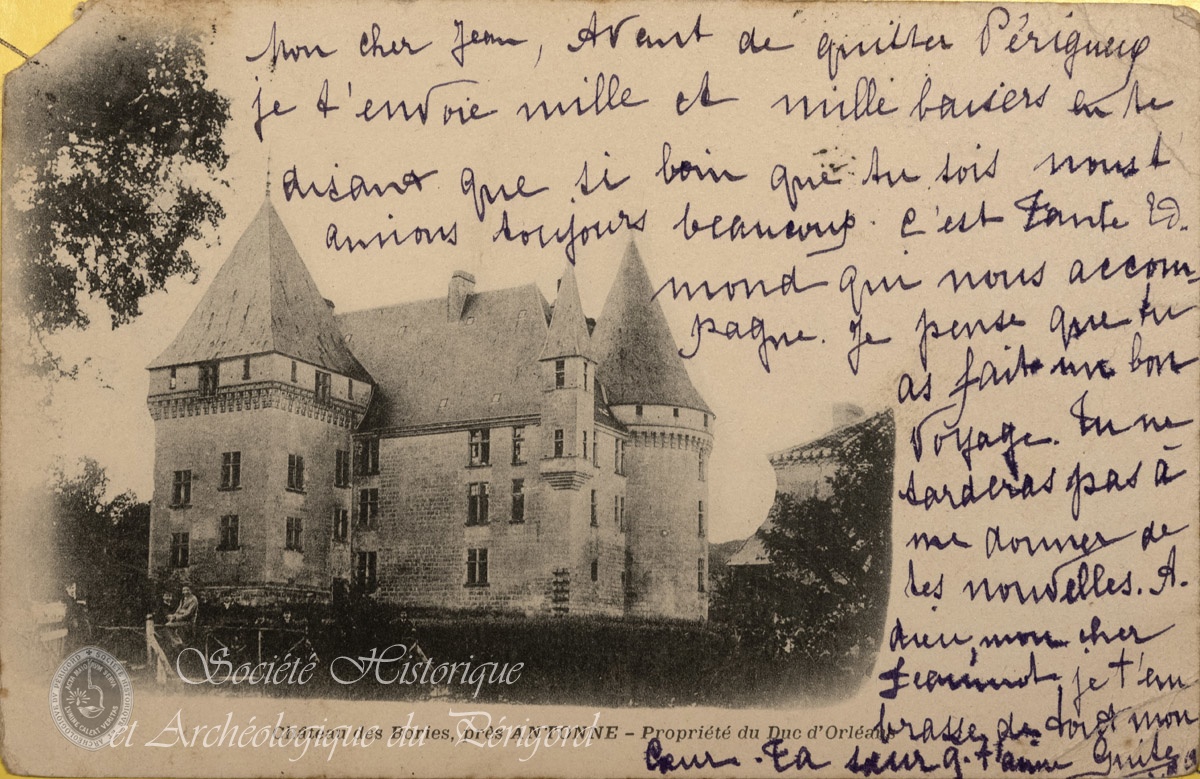 Mon cher Jean, Avant de quitter Périgueux
je t'envoie mille et mille baisers en te
disant que si loin que tu sois nous t'
aimons toujours beaucoup. C'est Tante Ed.
mond qui nous accom-
pagne. Je pense que tu
as fait un bon
voyage. Tu ne
tarderas pas à
me donner de
tes nouvelles. A.
dieu, mon cher
Jeannot, je t'em
brasse de tout mon
Cœur. Ta sœur q. t'aime
Château des Bories, près ANTONNE - Propriété du Duc d'Orléans
Société Historique
et Archéologique du Périgord